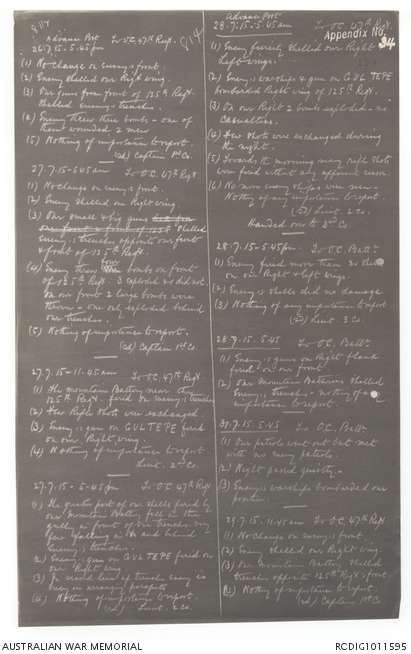 814
Advance Post
26.7.15 - 5.45pm To O.C. 47th Regt 814
(1) No change on enemy's front.
(2) Enemy shelled our Right wing.
(3) Our guns from front of 125th Regt.
Shelled enemy's trenches.
(4) Enemy threw three bombs - one of
them wounded 2 men
(5) Nothing of importance to report.
(sd) Captain 1st Co.
27.7.15 - 5.45am To O.C. 47th Regt
(1) No change on enemy's front.
(2) Enemy shelled our Right wing
(3) Our small & big guns
shelled
Enemy's trenches opposite our front
& front of 125th Regt.
(4) Enemy threw four bombs on front
of 125th Regt. 3 exploded & 1 did not.
On our front 2 large bombs were
thrown - one only exploded behind
our trenches.
(5) Nothing of importance to report.
(sd) Captain 1st Co.
27.7.15 - 11.45am To O.C. 47th Regt
(1) The mountain Battery near
125th Regt. fired on enemy's trenches
(2) Few Rifle shots were exchanged.
(3) Enemy's gun on GUL TEPE fired
on our Right wing.
(4) Nothing of importance to report
Lieut. 2nd Co.
27.7.15 - 5.45pm To O.C. 47th Regt
(1) The greater part of our shells fired by
our Mountain Battery fell in the
gully in front of our trenches. Very
few falling in and behind
Enemy's trenches.
(2) Enemy's gun on GUL TEPE fired on
our Right wing
(3) In second line of trench enemy is
busy in arranging parapets
(4) Nothing of importance to report.
(sd) Lieut 2 Co.
Advance Post
28.7.15 - 5.45am To O.C. 47th Regt
Appendix No. 34
(1) Enemy fiercely shelled our Right &
Left wings.
(2) Enemy's warships & gun on GUL TEPE
bombarded Right wing of 125th Regt.
(3) On our Right 2 bombs exploded - no
casualties.
(4) Few shots were exchanged during
the night.
(5) Towards the morning many rifle shots
were fired without any apparent reason
(6) No more enemy ships were seen -
Nothing of any importance to report.
(sd) Lieut. 2 Co.
Handed over to 3rd Co
28.7.15 - 5.45pm To O.C. Battn
(1) Enemy fired more than 20 shells
on our Right & left wings.
(2) Enemy's shells did no damage
(3) Nothing of any importance to report
(sd) Lieut. 3 Co.
28.7.15 5.45 To O.C. Battn
(1) Enemy's guns on Right flank
fired on our front
(2) Our Mountain Batteries shelled
Enemy's trenches - nothing of
importance to report.
30.7.15 - 5.45 To O.C. Battn
(1) Our patrol went out but met
with no enemy patrols.
(2) Night passed quietly.
(3) Enemy's warships bombarded our
front.
29.7.15 - 11.45am To O.C. 47th Regt
(1) No change on enemy's front.
(2) Enemy shelled our Right wing
(3) Our Mountain Battery shelled
trenches opposite 125th Regt's front.
(4) Nothing of importance to report.
(sd) Captain 1st Co.
AUSTRALIAN WAR MEMORIAL
RCDIG1011595